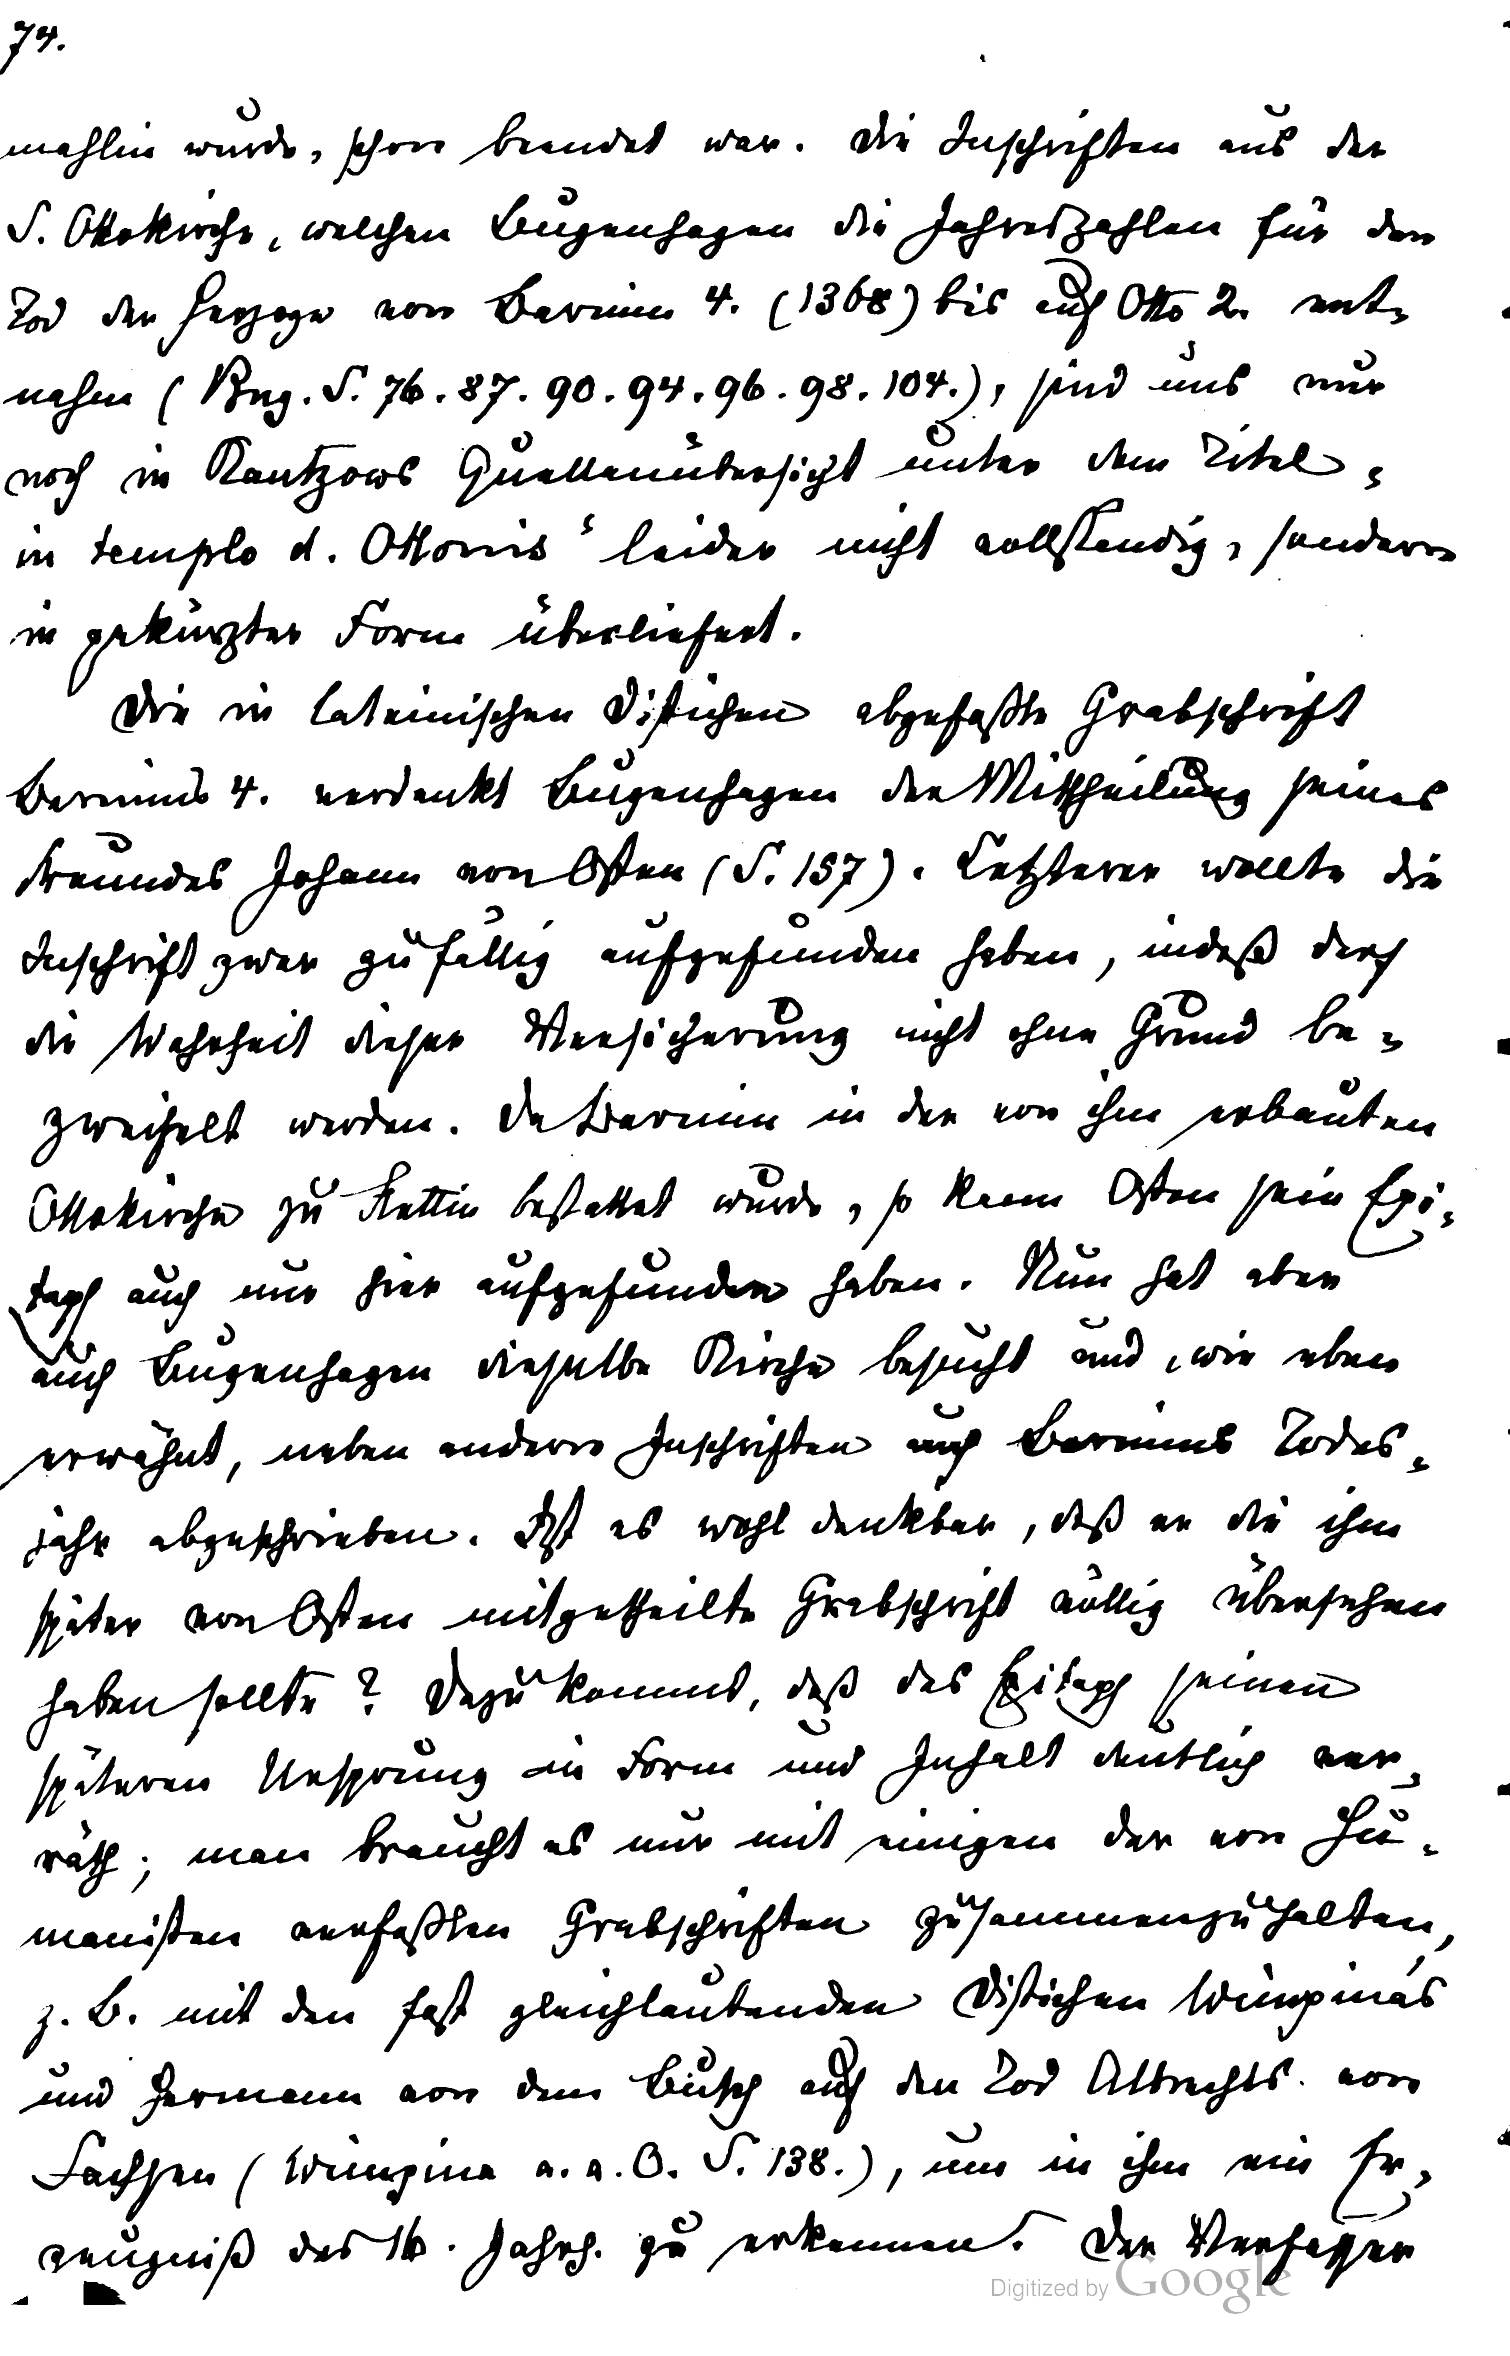 74.
mahlin wurde, schon beendet war. Die Inschriften aus der
S. Ottokirche, welchen Bugenhagen die Jahreszahlen für den
Tod der Herzoge von Barnim 4. (1368) bis auf Otto 2. ent-
nahm (Bug. S. 76. 87. 90. 94. 96. 98. 104.), sind uns nur
noch in Kantzows Quellenübersicht unter dem Titel „
in templo d. Ottonis“ leider nicht vollständig, sondern
in gekürzter Form überliefert.
Die in lateinischen Distichen abgefaßte Grabschrift
Barnims 4. verdankt Bugenhagen der Mittheilung seines
Freundes Johann von Osten (S. 157). Letzterer wollte die
Inschrift zwar zufällig aufgefunden haben, indeß darf
die Wahrheit dieser Versicherung nicht ohne Grund be-
zweifelt werden. Da Barnim in der von ihm erbauten
Ottokirche zu Stettin bestattet wurde, so kann Osten sein Epi-
taph auch nur hier aufgefunden haben. Nun hat aber
auch Bugenhagen dieselbe Kirche besucht und, wie eben
erwähnt, neben andern Inschriften auch Barnims Todes-
jahr abgeschrieben. Ist es wohl denkbar, daß er die ihm
später von Osten mitgetheilte Grabschrift völlig übersehen
haben sollte? Dazu kommt, daß das Epitaph seinen
späteren Ursprung in Form und Inhalt deutlich ver-
räth; man braucht es nur mit einigen der von Hu-
manisten verfaßten Grabschriften zusammenzuhalten,
z. B. mit den fast gleichlautenden Distichen Wimpina's
und Hermann von dem Busch auf den Tod Albrechts von
Sachsen (Wimpina a. a. O. S. 138.), um in ihm ein Er-
zeugniß des 16. Jahrh. zu erkennen. Der Verfasser
Digitized by Google